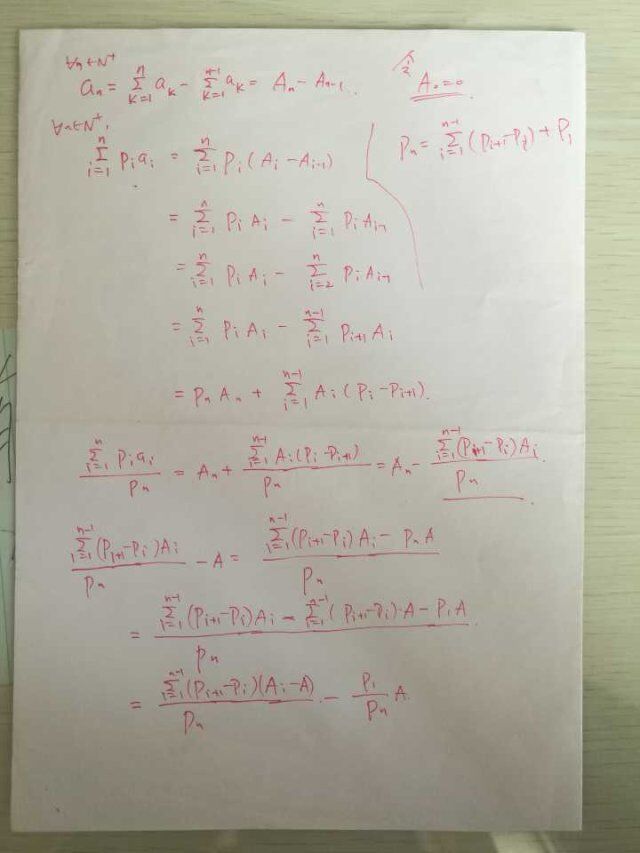 ∀n∈N⁺
aₙ = Σ_{k=1}^{n} aₖ - Σ_{k=1}^{n-1} aₖ = Aₙ - Aₙ₋₁. 令 A₀=0
∀n∈N⁺,
Σ_{i=1}^{n} pᵢaᵢ = Σ_{i=1}^{n} pᵢ(Aᵢ - Aᵢ₋₁)
pₙ = Σ_{i=1}^{n-1} (pᵢ₊₁ - pᵢ) + p₁
= Σ_{i=1}^{n} pᵢAᵢ - Σ_{i=1}^{n} pᵢAᵢ₋₁
= Σ_{i=1}^{n} pᵢAᵢ - Σ_{i=2}^{n} pᵢAᵢ₋₁
= Σ_{i=1}^{n} pᵢAᵢ - Σ_{i=1}^{n-1} pᵢ₊₁Aᵢ
= pₙAₙ + Σ_{i=1}^{n-1} Aᵢ(pᵢ - pᵢ₊₁).
(Σ_{i=1}^{n} pᵢaᵢ)/pₙ = Aₙ + (Σ_{i=1}^{n-1} Aᵢ(pᵢ - pᵢ₊₁))/pₙ = Aₙ - (Σ_{i=1}^{n-1} (pᵢ₊₁ - pᵢ)Aᵢ)/pₙ.
(Σ_{i=1}^{n-1} (pᵢ₊₁ - pᵢ)Aᵢ)/pₙ - A = (Σ_{i=1}^{n-1} (pᵢ₊₁ - pᵢ)Aᵢ - pₙA)/pₙ
= (Σ_{i=1}^{n-1} (pᵢ₊₁ - pᵢ)Aᵢ - Σ_{i=1}^{n-1} (pᵢ₊₁ - pᵢ)·A - p₁A)/pₙ
= (Σ_{i=1}^{n-1} (pᵢ₊₁ - pᵢ)(Aᵢ - A))/pₙ - (p₁/pₙ)A